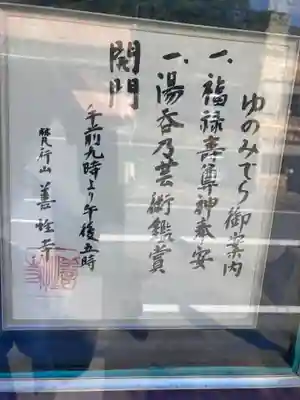 ゆのみでら御案内
一、福禄寿尊神奉安
一、湯呑乃芸術鑑賞
開門
午前九時より午後五時
梵行山 善性寺